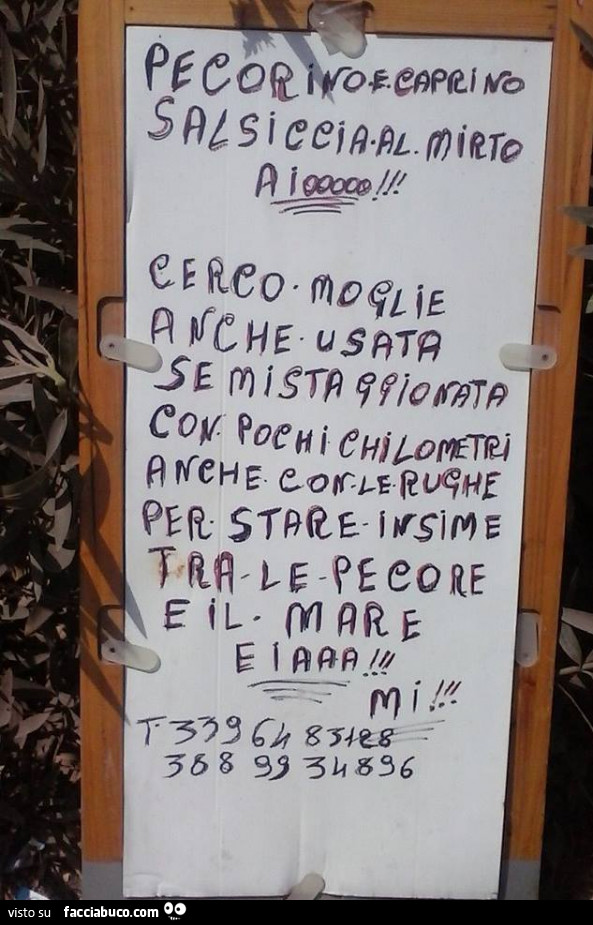 PECORINO E. CAPRINO
SALSICCIA. AL. MIRTO
AIOOOOO!!!
CERCO. MOGLIE
ANCHE. USATA
SEMISTAGGIONATA
CON. POCHI. CHILOMETRI
ANCHE. CON. LE. RUGHE
PER. STARE. INSIME
TRA-LE-PECORE
E IL. MARE
EIAAA!!!
MI!!!
T. 339 64 83128
388 99 34896
visto su facciabuco.com